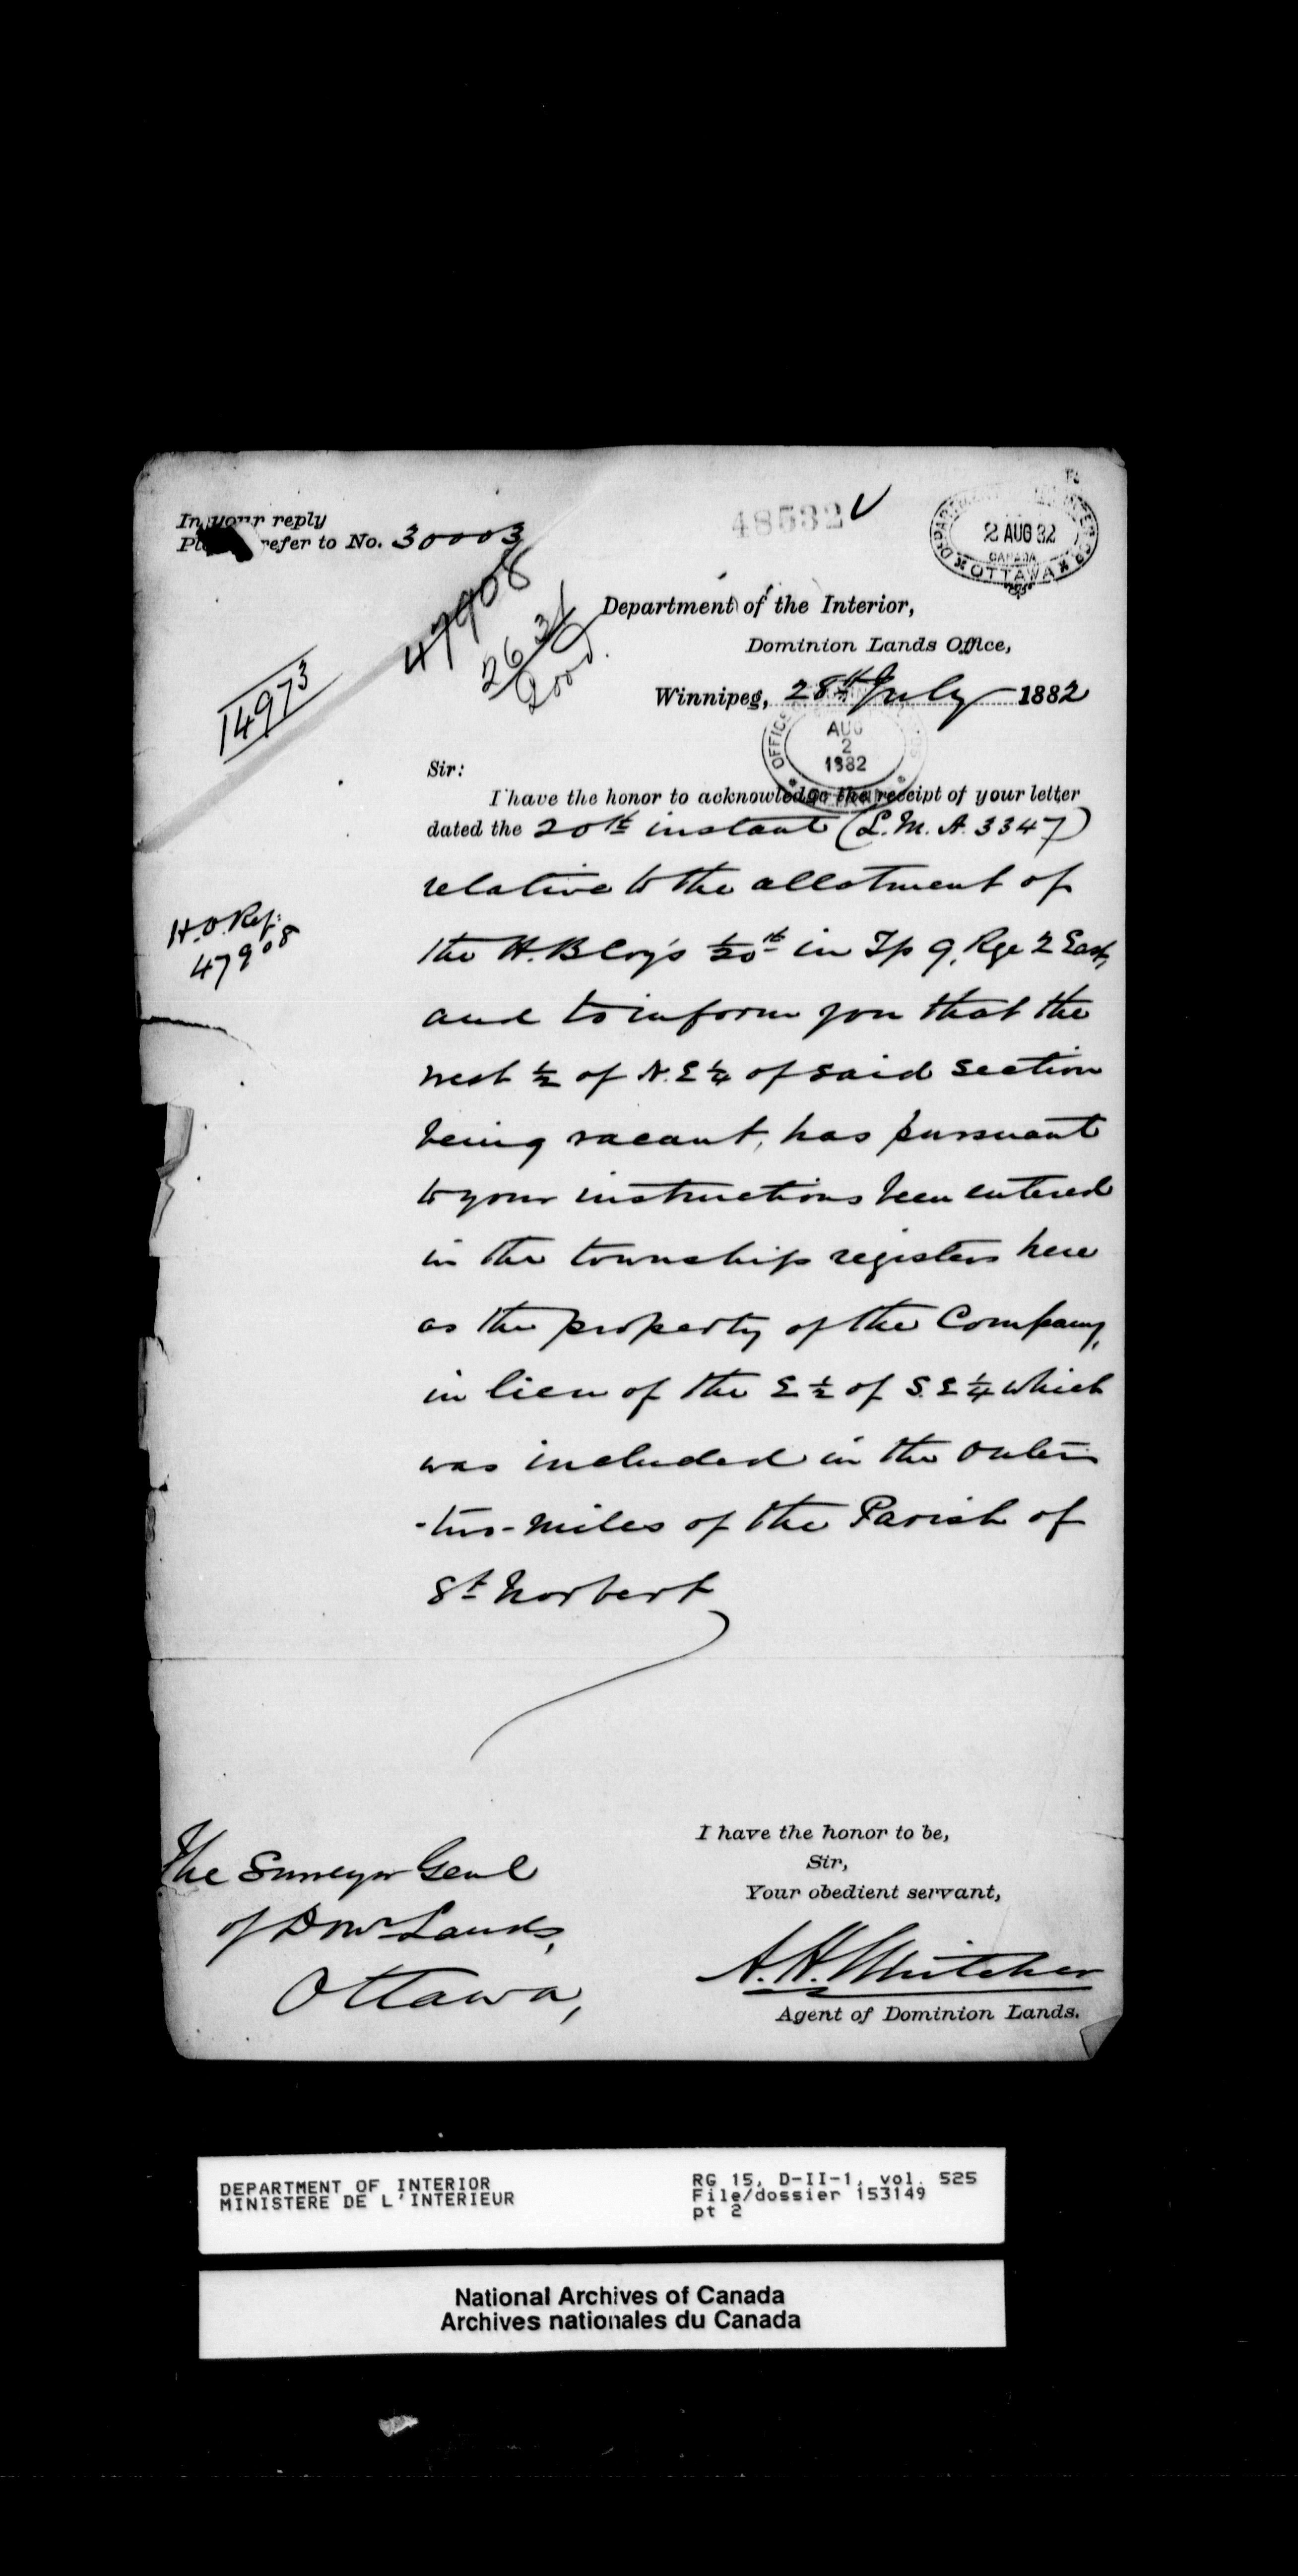 In your reply
refer to No. 30003
48532 ✓
DEPARTMENT
2 AUG 82
CANADA
OTTAWA
47908
2631
14973
Department of the Interior,
Dominion Lands Office,
Winnipeg, 28th July 1882
OFFICE
AUG
2
1882
Sir:
I have the honor to acknowledge the receipt of your letter
dated the 20th instant (L.M.A. 3347)
relative to the allotment of
the H.B Coy's 1/20th in Tp 9, Rge 2 East,
and to inform you that the
west ½ of N.E ¼ of said section
being vacant, has pursuant
to your instructions been entered
in the township registers here
as the property of the Company,
in lieu of the E ½ of S.E ¼ which
was included in the outer
-two-miles of the Parish of
St Norbert
H.O. Ref:
47908
I have the honor to be,
Sir,
Your obedient servant,
A.H. Whitcher
Agent of Dominion Lands.
The Surveyor Genl
of Domn Lands,
Ottawa,
DEPARTMENT OF INTERIOR
MINISTERE DE L'INTERIEUR
RG 15, D-II-1, vol. 525
File/dossier 153149
pt 2
National Archives of Canada
Archives nationales du Canada